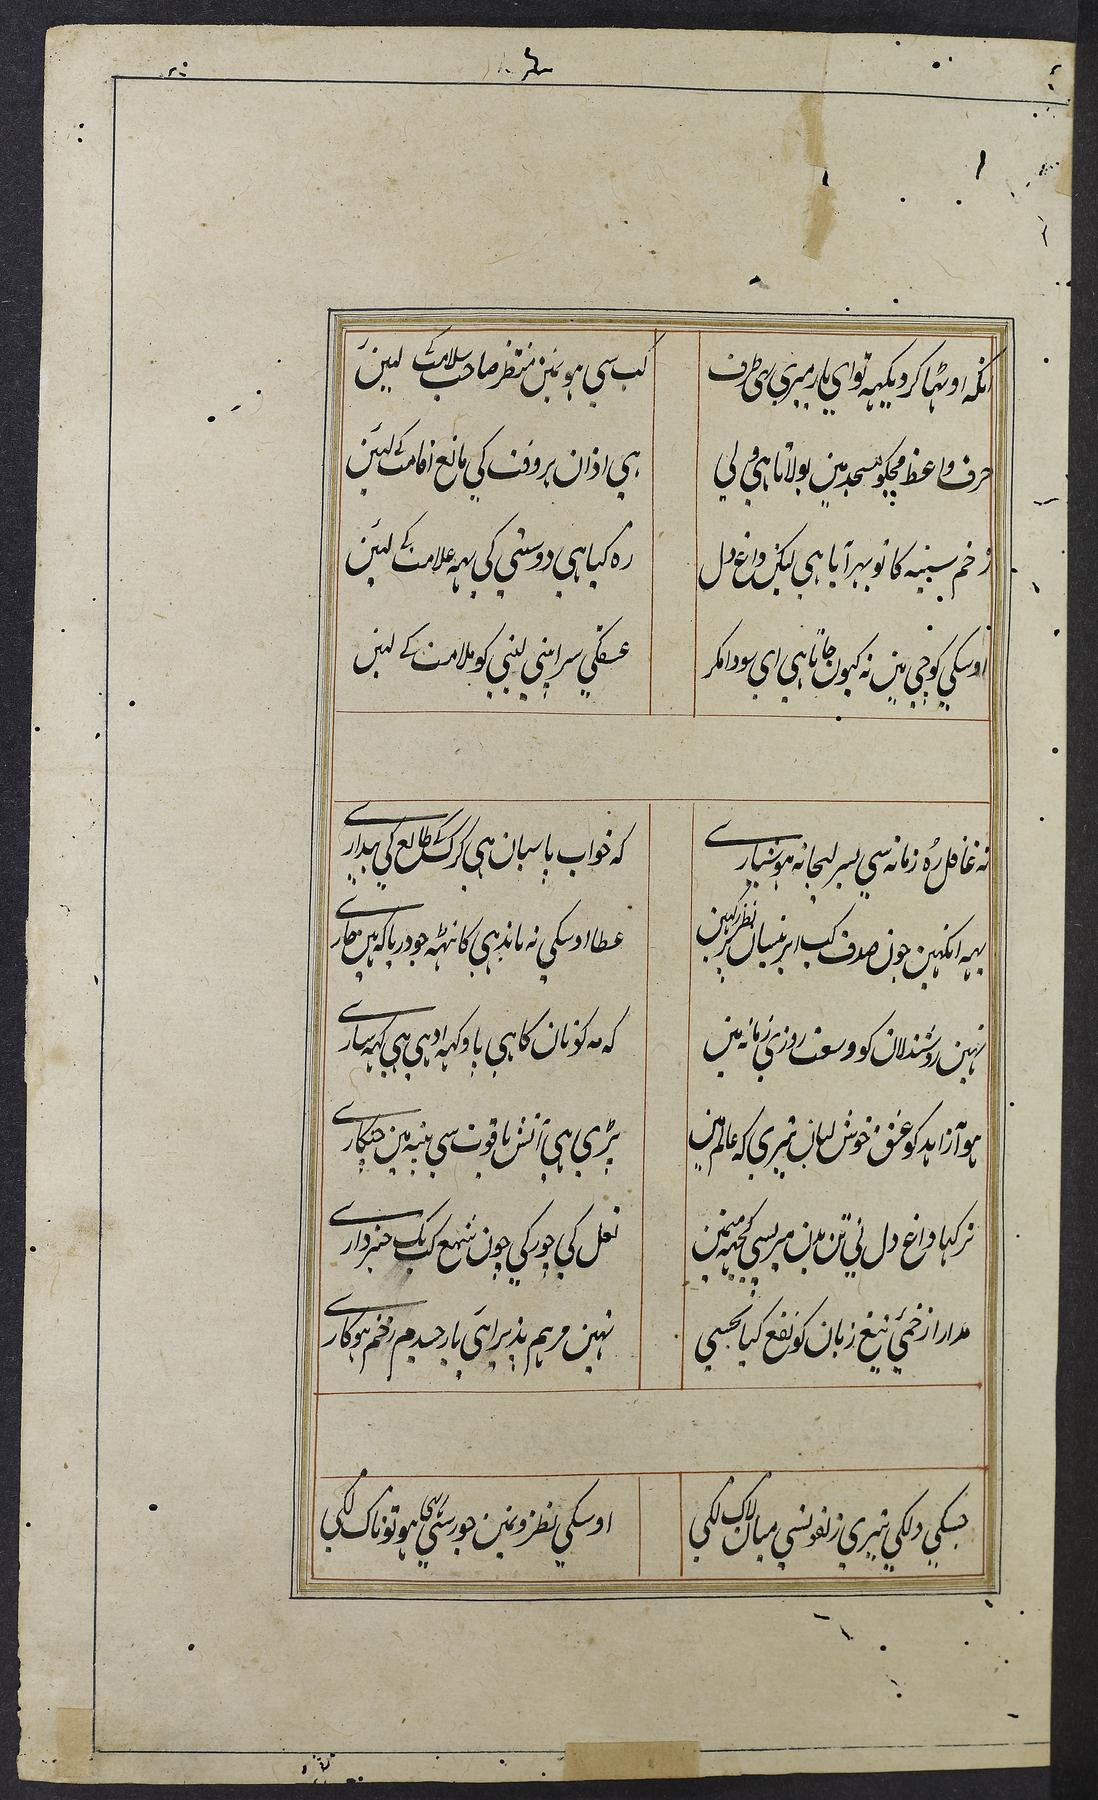 انکہہ اوٹہا کر دیکہہ تو ای یار میری ہی طرف
کب سی ہونمین منتظر صاحب سلامت کے لیئن
حرف واعظ مجکو مسجد مین بولاتا ہی ولی
ہی اذان ہر وقت کی مانع اقامت کے لیئن
زخم سینہ کا تو بہر آیا ہی لیکن داغ دل
رہ کیا ہی دوستی کی یہہ علامت کے لیئن
اوسکی کوچی مین نہ کیون جاتا ہی ای سودا مکر
عشقکی سر اپنی لینی کو ملامت کے لیئن
نہ غافل رہ زمانہ سی بسر لیجانہ ہوشیاری
کہ خواب پاسبان ہی کرکسی کے طالع کی بیداری
یہہ انکہین جون صدف کب ابر نیسان پر نظر رکہین
عطا اوسکی نہ ماند ہی کانٹہہ جو دریا کہ ہین جاری
نہین روشندلان کو وسعت روزی زمانہ مین
کہ مہ کو نان کاہی پاو کہہ ادہی ہی کہہ ساری
ہوا زاہد کو عشق خوش لبان تیری کہ عالم مین
پڑی ہی آتش یاقوت سی پنبہ مین چنکاری
نرکہا داغ دل نی تن بدن میریسی کچہہ مینمین
نعل کی چورکی جون شمع کب تک خبرداری
مدارا زخمئ تیغ زبان کو نفع کیا بخشی
نہین مرہم پذیر اہی یار جسدم زخم ہو کاری
جسکی دلکی تیری زلفونسی میان لاک لکی
اوسکی نظرونمین جو رسی ہی ہو تو ناک لکی